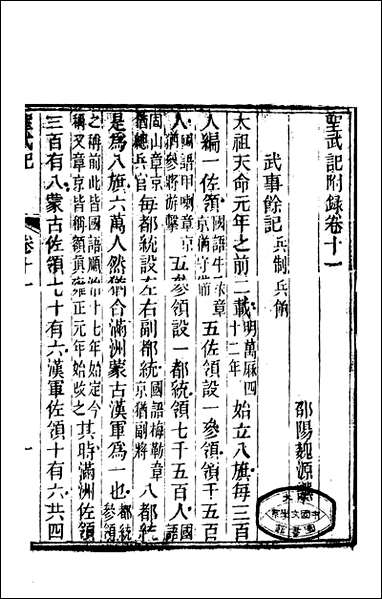 聖武記附錄卷十一
邵陽魏源
武事餘記 兵制兵餉
太祖天命元年之前二載 明萬厤四十二年 始立八旗每三百
人編一佐領 國語牛彔章京猶守備 五佐領設一參領領千五百
人 國語甲喇章京猶參將游擊 五參領設一都統領七千五百人 國語
固山章京猶總兵官 每都統設左右副都統 國語梅勒章京猶副將 八都統
是為八旗六萬人然猶合滿洲蒙古漢軍為一也 都統參領
之稱前此皆國語順治十七年始定今稱又章京皆稱額真雍正元年始改之 其時滿洲佐領
三百有八蒙古佐領七十有六漢軍佐領十有六共四
聖武記 卷十一 一